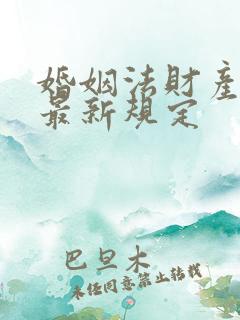 婚姻法財產
最新規定
巴旦木
未经同意禁止转载